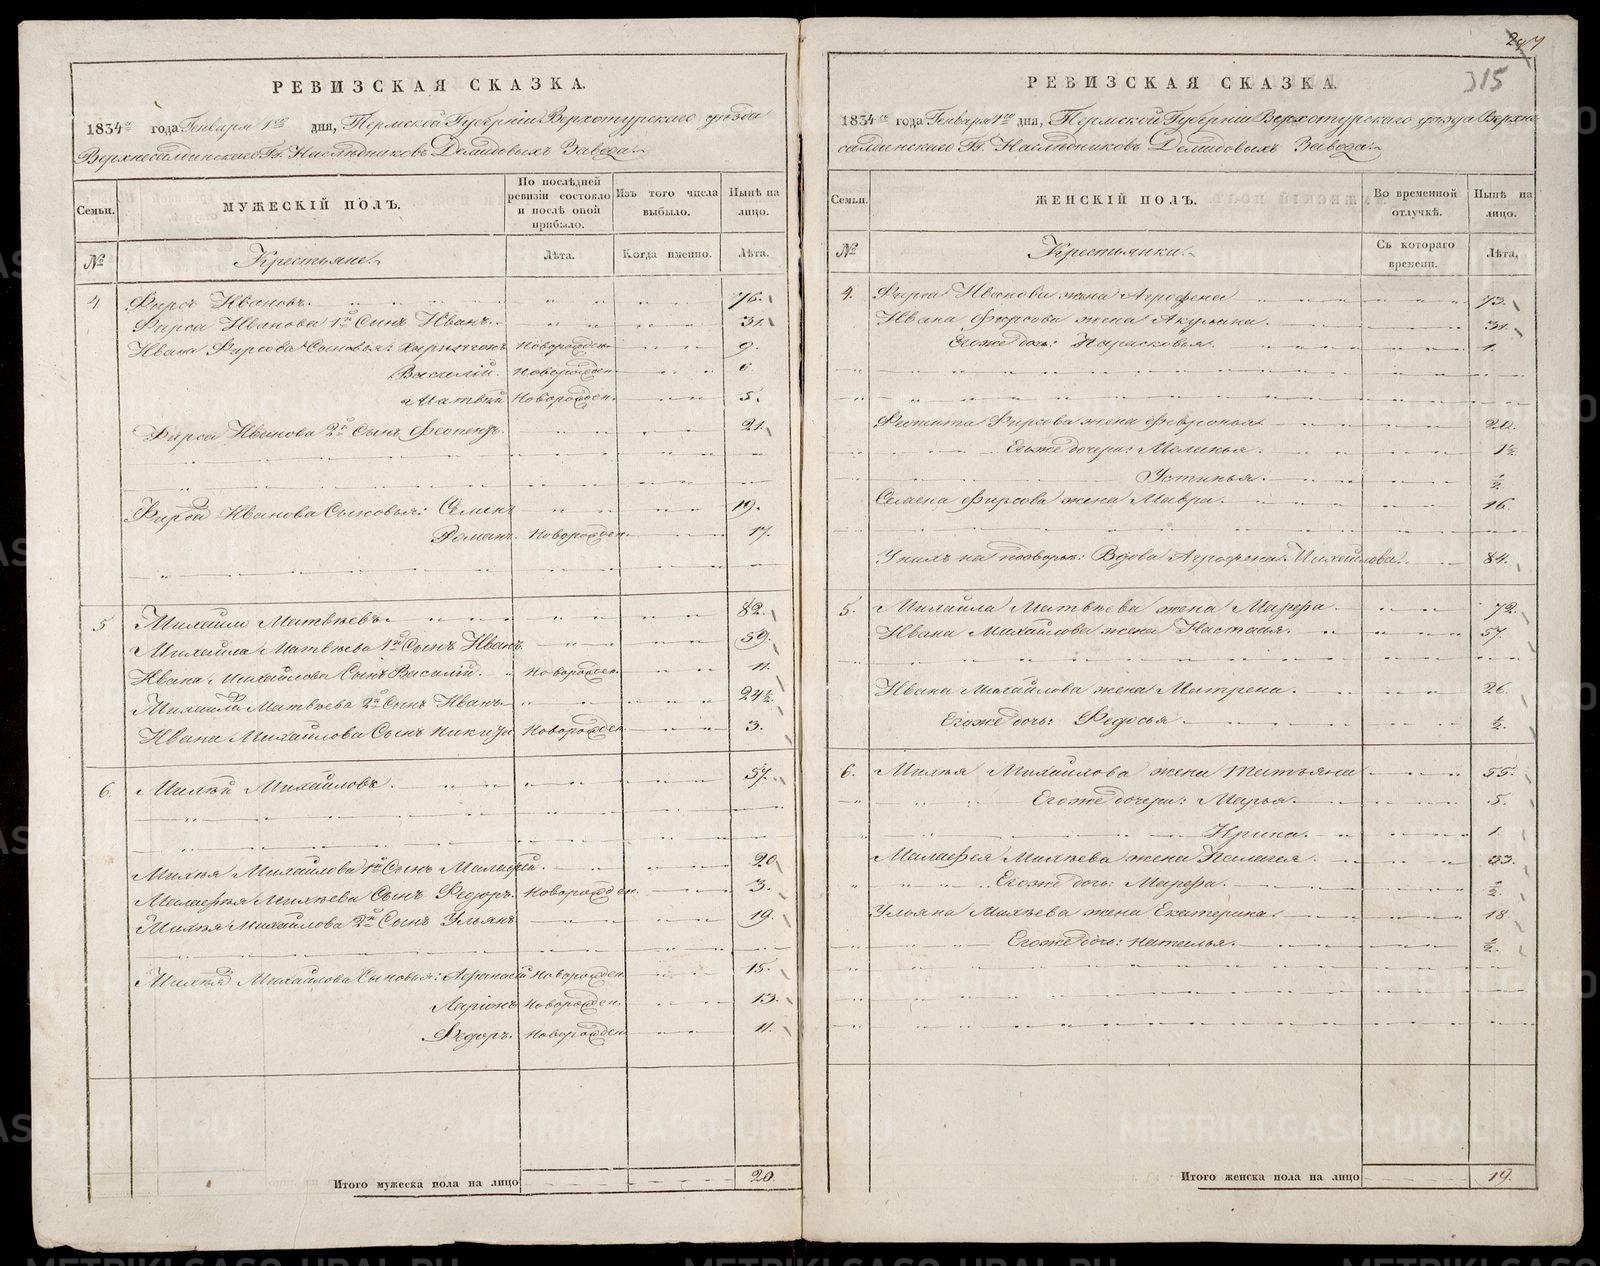 РЕВИЗСКАЯ СКАЗКА.
1834го года Генваря 1го дня, Пермской Губерніи Верхотурскаго уѣзда
Верхнесалдинскаго Гг. Наслѣдниковъ Демидовыхъ Завода.
Семьи.
МУЖЕСКІЙ ПОЛЪ.
По послѣдней ревизіи состояло и послѣ оной прибыло.
Изъ того числа выбыло.
Нынѣ на лицо.
№
Крестьяне.
Лѣта.
Когда именно.
Лѣта.
4 Фирсъ Ивановъ. 76.
Фирса Иванова 1й Сынъ Иванъ. 31.
Ивана Фирсова Сыновья: Харитонъ Новорожден. 9.
Василій. Новорожден. 6.
Матвѣй Новорожден. 5.
Фирса Иванова 2й Сынъ Феопентъ. 21.
Фирса Иванова Сыновья: Семенъ 19.
Романъ. Новорожден. 17.
5 Михайло Матвѣевъ. 82.
Михайла Матвѣева 1й Сынъ Иванъ. 59.
Ивана Михайлова Сынъ Василій. Новорожден. 11.
Михайла Матвѣева 2й Сынъ Иванъ 24½
Ивана Михайлова Сынъ Никита Новорожден. 3.
6. Михѣй Михайловъ. 57.
Михѣя Михайлова 1й Сынъ Малафѣй. 20.
Малафѣя Михѣева Сынъ Федоръ. Новорожден. 3.
Михѣя Михайлова 2й Сынъ Ульянъ 19.
Михѣя Михайлова Сыновья: Афанасій Новорожден. 15.
Ларіонъ Новорожден. 13.
Федоръ. Новорожден. 11.
Итого мужеска пола на лицо 20.
315
РЕВИЗСКАЯ СКАЗКА.
1834го года Генваря 1го дня, Пермской Губерніи Верхотурскаго уѣзда Верхне
салдинскаго Гг. Наслѣдниковъ Демидовыхъ Завода.
Семьи.
ЖЕНСКІЙ ПОЛЪ.
Во временной отлучкѣ.
Нынѣ на лицо.
№
Крестьянки.
Съ котораго времени.
Лѣта.
4. Фирса Иванова жена Агрофена 73.
Ивана Фирсова жена Акулина. 31.
Егоже дочь: Парасковья. 1.
Феопента Фирсова жена Февронья. 20.
Егоже дочери: Меланья. 1½
Устинья. ½
Семена Фирсова жена Мавра. 16.
У нихъ на подворьѣ: Вдова Агрофена Михайлова. 84.
5. Михайла Матвѣева жена Марфа. 72.
Ивана Михайлова жена Настасья. 57.
Ивана Михайлова жена Матрена. 26.
Егоже дочь: Федосья ½.
6. Михѣя Михайлова жена Татьяна 55.
Егоже дочери: Марья. 5.
Ирина. 1
Малафея Михѣева жена Пелагея. 33.
Егоже дочь: Марфа. ½
Ульяна Михѣева жена Екатерина. 18
Егоже дочь: Наталья. ½.
Итого женска пола на лицо 19.
METRIKI.GASO-URAL.RU